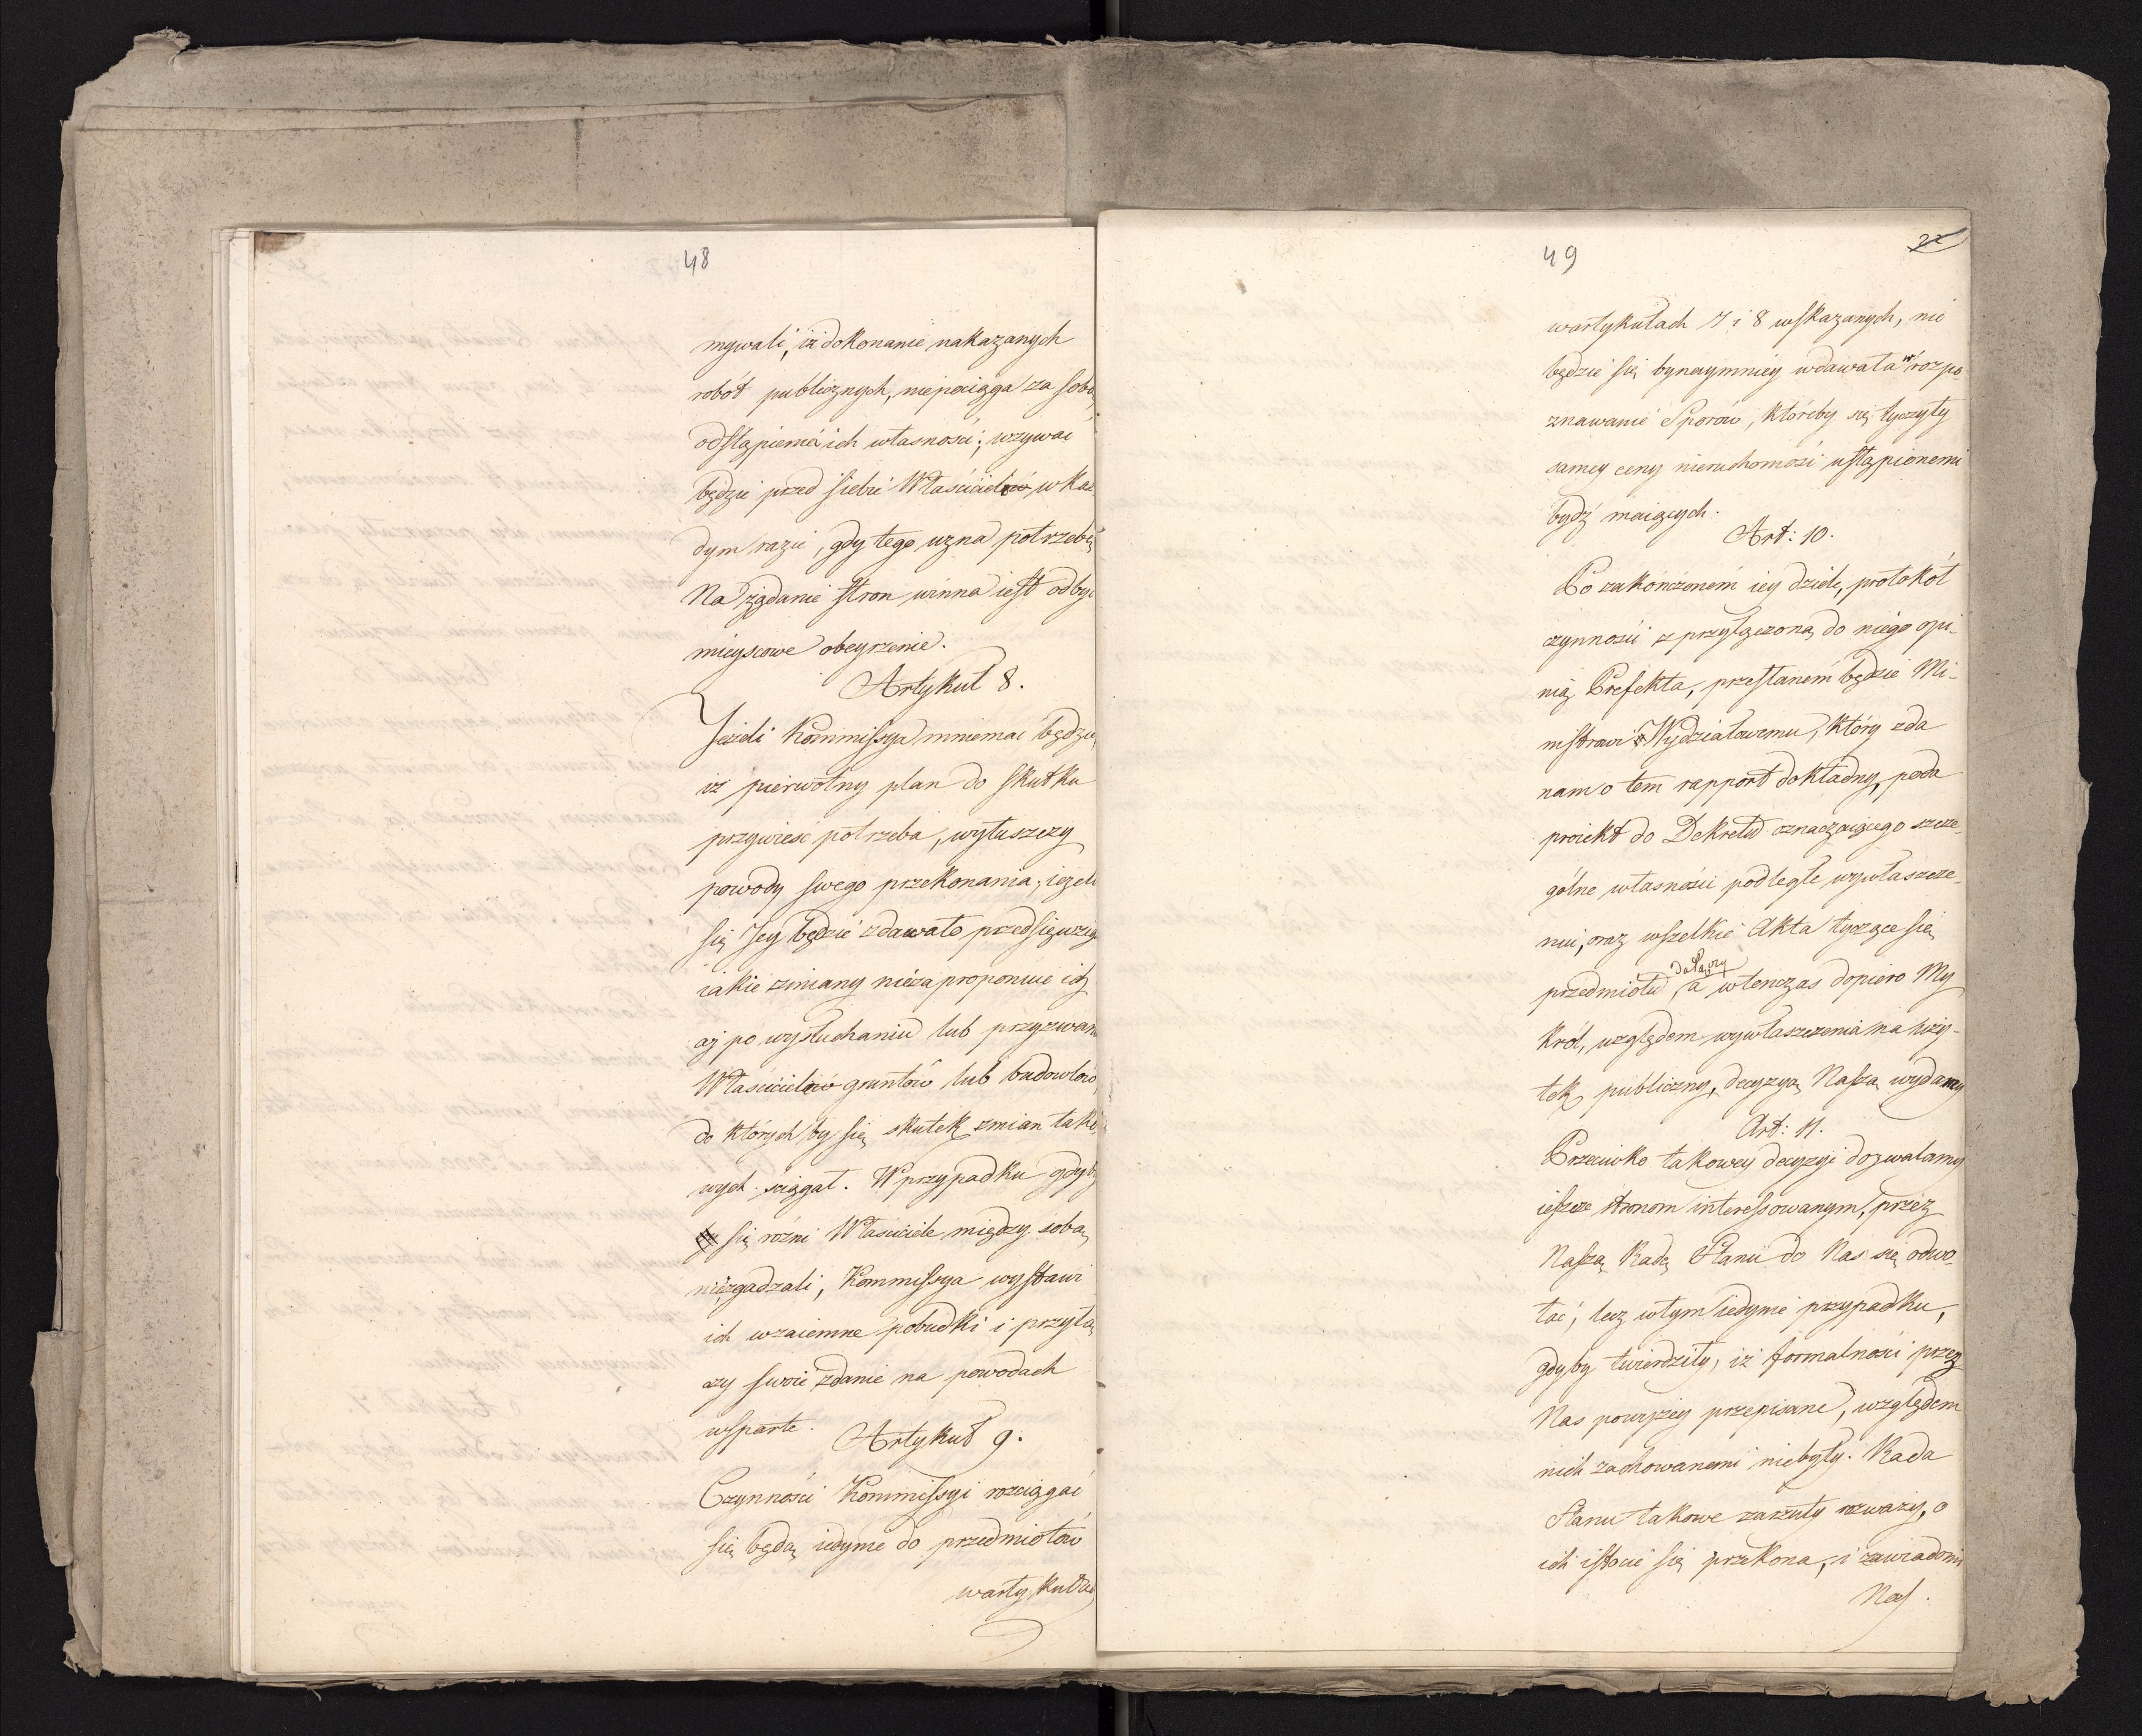 48
mywali, iż dokonanie nakazanych
robót publicznych, niepociąga za sobą
odstąpienia ich własności; wzywać
będzie przed siebie Właścicielów w każ
dym razie, gdy tego uzna potrzebę
Na żądanie stron winna iest odbyć
mieyscowe obeyrzenie.
Artykuł 8.
Jeżeli Kommissya mniemać będzie,
iż pierwotny plan do skutku
przywieść potrzeba, wyłuszczy
powody swego przekonania, ieżeli
się Jey będzie zdawało przedsięwziąć
iakie zmiany nieza proponuie ich
aż po wysłuchaniu lub przyzwaniu
Właścicielów gruntów lub budowlów,
do których by się skutek zmian tako
wych ściągał. W przypadku gdyby
się różni Właściciele między sobą
niezgadzali, Kommissya wystawi
ich wzaiemne pobudki i przyłą
czy swoie zdanie na powodach
wsparte.
Artykuł 9.
Czynności Kommissyi rozciągać
się będą iedynie do przedmiotów
wartykułach
49
22
wartykułach 7 i 8 wskazanych, nie
będzie się bynaymniey wdawała w rozpo-
znawanie Sporów, któreby się tyczyły
samey ceny nieruchomości ustąpionemi
bydź maiących.
Art: 10.
Po zakończoném iey dziele, protokół
czynności z przyłączoną do niego opi-
nią Prefekta, przesłaném będzie Mi-
nistrowi Wydziałowemu, który zda
nam o tem rapport dokładny, poda
proiekt do Dekretu oznaczaiącego szcze-
gólne własności podległe wywłaszcze-
niu, oraz wszelkie Akta tyczące się
przedmiotu dołączy, a wtenczas dopiero My
Król, względem wywłaszczenia na uży-
tek publiczny, decyzyą Naszą wydamy
Art: 11.
Przeciwko takowey decyzyi dozwalamy
ieszcze stronom interessowanym, przez
Naszą Radę Stanu do Nas się odwo-
łać, lecz wtym iedynie przypadku,
gdyby twierdziły, iż formalności przez
Nas powyżey przepisane, względem
nich zachowanemi niebyły. Rada
Stanu takowe zarzuty rozważy, o
ich istocie się przekona, i zawiadomi
Nas.